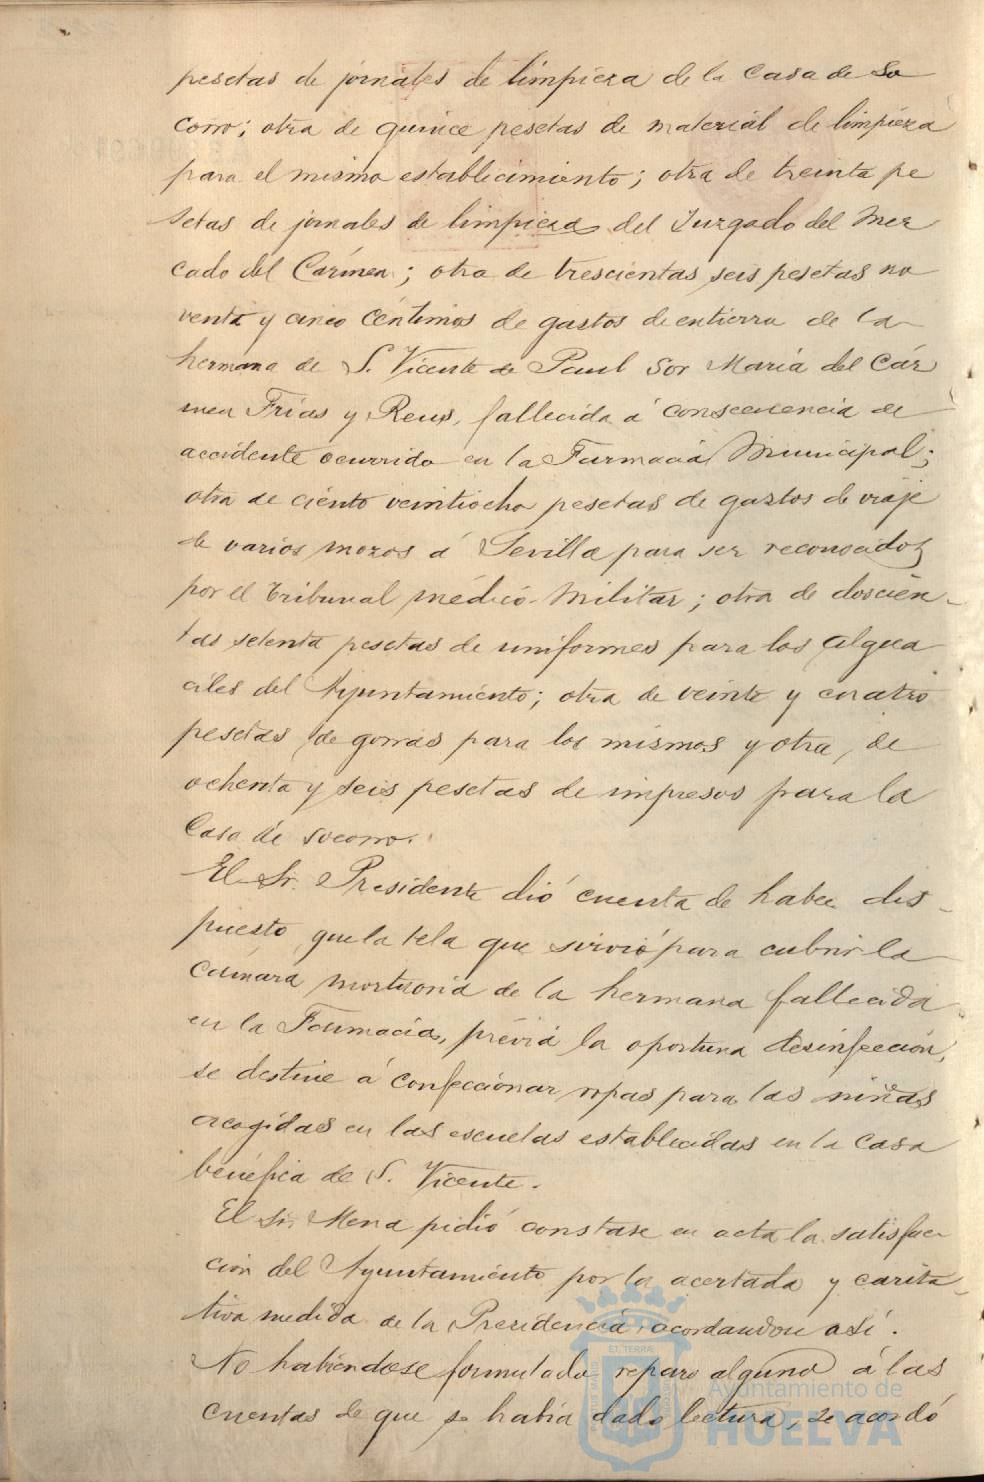 pesetas de jornales de limpieza de la Casa de So
corro; otra de quince pesetas de material de limpieza
para el mismo establecimiento; otra de treinta pe
setas de jornales de limpieza del Juzgado del Mer
cado del Cármen; otra de trescientas seis pesetas no
venta y cinco céntimos de gastos de entierro de la
hermana de S. Vicente de Paul Sor Maria del Cár
men Frias y Reus, fallecida á consecuencia de
accidente ocurrido en la Farmacia Municipal;
otra de ciento veintiocho pesetas de gastos de viaje
de varios mozos á Sevilla para ser reconocidos
por el tribunal médico-Militar; otra de doscien-
tas setenta pesetas de uniformes para los algua
ciles del Ayuntamiento; otra de veinte y cuatro
pesetas de gorras para los mismos y otra, de
ochenta y seis pesetas de impresos para la
Casa de Socorro.
El Sr. Presidente dió cuenta de haber dis-
puesto, que la tela que sirvió para cubrir la
cámara mortuoria de la hermana fallecida
en la Farmacia, prévia la oportuna desinfección,
se destine á confeccionar ropas para las niñas
acogidas en las escuelas establecidas en la Casa
benéfica de S. Vicente.
El Sr. Mena pidió constase en acta la satisfac-
ción del Ayuntamiento por la acertada y carita-
tiva medida de la Presidencia, acordandose así.
No habiéndose formulado reparo alguno á las
cuentas de que se habia dado lectura, se acordó
Ayuntamiento de
HUELVA